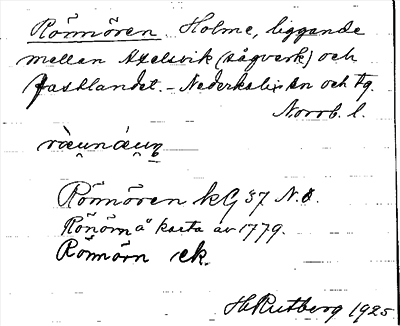 Rönnören Holme, liggande
mellan Axelsvik (sågverk) och
fastlandet. - Nederkalix sn och tg.
Norrb. l.
Rönnören kG 37 N.O.
Rönörn å karta av 1779.
Rönnörn ek.
H. Rutberg 1925